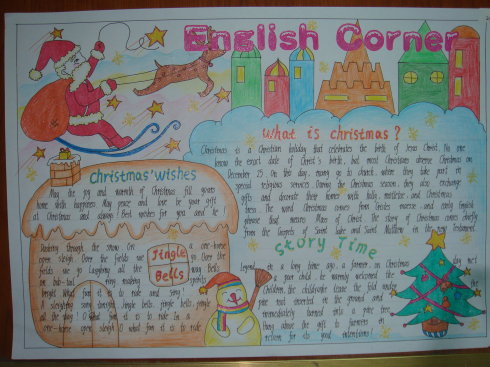 English Corner
What is christmas?
Christmas is a Christian holiday that celebrates the birth of Jesus Christ. No one
know the exact date of Christ's birth, but most Christians observe Christmas on
December 25. On this day, many go to church where they take part in
special religious services. During the Christmas season, they also exchange
gifts and decorate their homes with holly, mistletoe and Christmas
trees. The word Christmas comes from Cristes maesse, and early English
phrase that means Mass of Christ. The story of Christmas comes chiefly
from the Gospels of Saint Luke and Saint Matthew in the new Testament.
Christmas' Wishes
May the joy and warmth of Christmas fill yours
heart with happiness May peace and love be your gift
at Christmas and always! Best wishes for you and me!
Jingle Bells
Dashing through the snow On a one-horse
open sleigh. Over the fields we go
fields we go Laughing all the way Bells
on bob-tail ring making spirits
bright What fun it is to ride and sing
A sleighing song tonight Jingle bells, jingle bells, jingle
all the way! O what fun it is to ride In a
one-horse open sleigh O what fun it is to ride
Story Time
Legend, in a long time ago, a farmer on Christmas day met
a poor child, he warmly welcomed the
Children, the child
pine and inserted in the ground and
immediately turned into a pine tree,
they above the gift to farmers in
return for its good intentions!